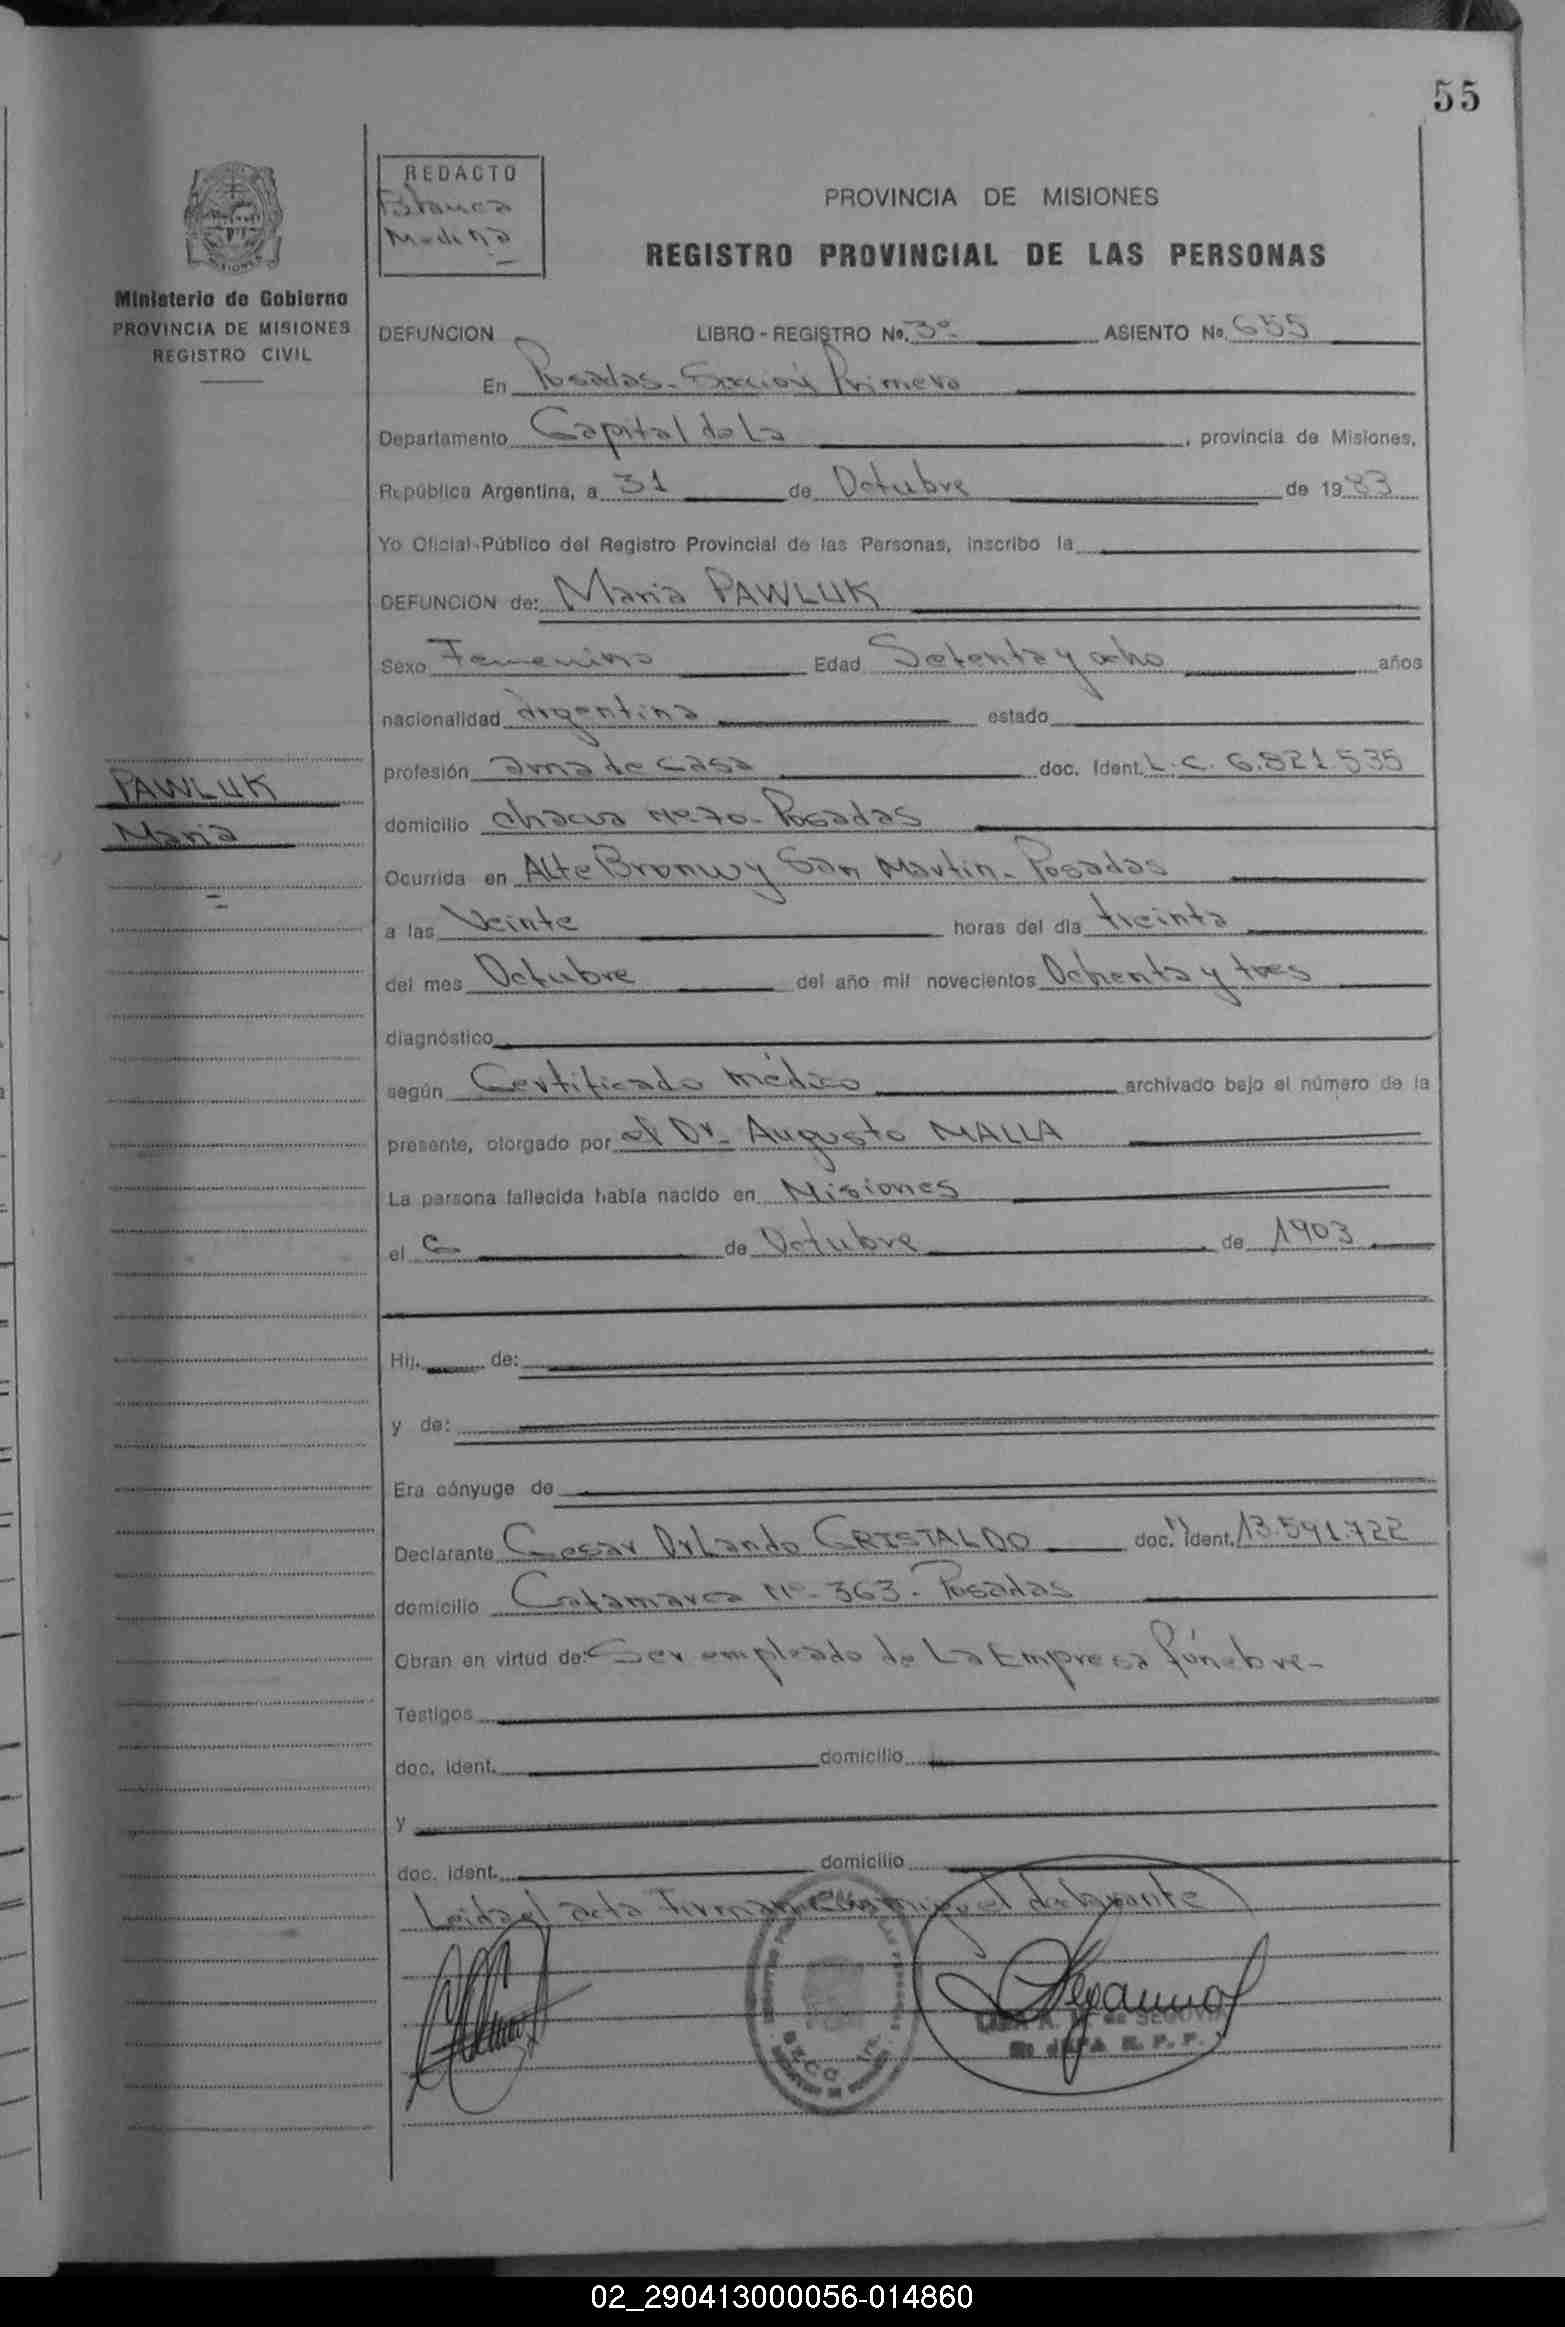 55
REDACTO
Blanca
Medina
PROVINCIA DE MISIONES
REGISTRO PROVINCIAL DE LAS PERSONAS
Ministerio de Gobierno
PROVINCIA DE MISIONES
REGISTRO CIVIL
DEFUNCION LIBRO - REGISTRO No. 3º ASIENTO No. 655
En Posadas - Sección Primera
Departamento Capital de La , provincia de Misiones,
República Argentina, a 31 de Octubre de 1983
Yo Oficial Público del Registro Provincial de las Personas, inscribo la
DEFUNCION de: Maria PAWLUK
Sexo Femenino Edad Setenta y ocho años
nacionalidad argentina estado
profesión ama de casa doc. Ident. L.C. 6.821.535
PAWLUK
Maria
domicilio chacra Nº 70 - Posadas
Ocurrida en Alte Brown y San Martin - Posadas
a las Veinte horas del día treinta
del mes Octubre del año mil novecientos Ochenta y tres
diagnóstico
según Certificado médico archivado bajo el número de la
presente, otorgado por el Dr. Augusto MALLA
La persona fallecida había nacido en Misiones
el 6 de Octubre de 1903
Hij. de:
y de:
Era cónyuge de
Declarante Cesar Orlando CRISTALDO doc. Ident. 13.591.722
domicilio Catamarca Nº 363 - Posadas
Obran en virtud de: Ser empleado de La Empresa fúnebre -
Testigos
doc. Ident. domicilio
y
doc. Ident. domicilio
Leida el acta Firman Conmigo el declarante
DE SEGOVIA
JEFA R. P. P.
02_290413000056-014860